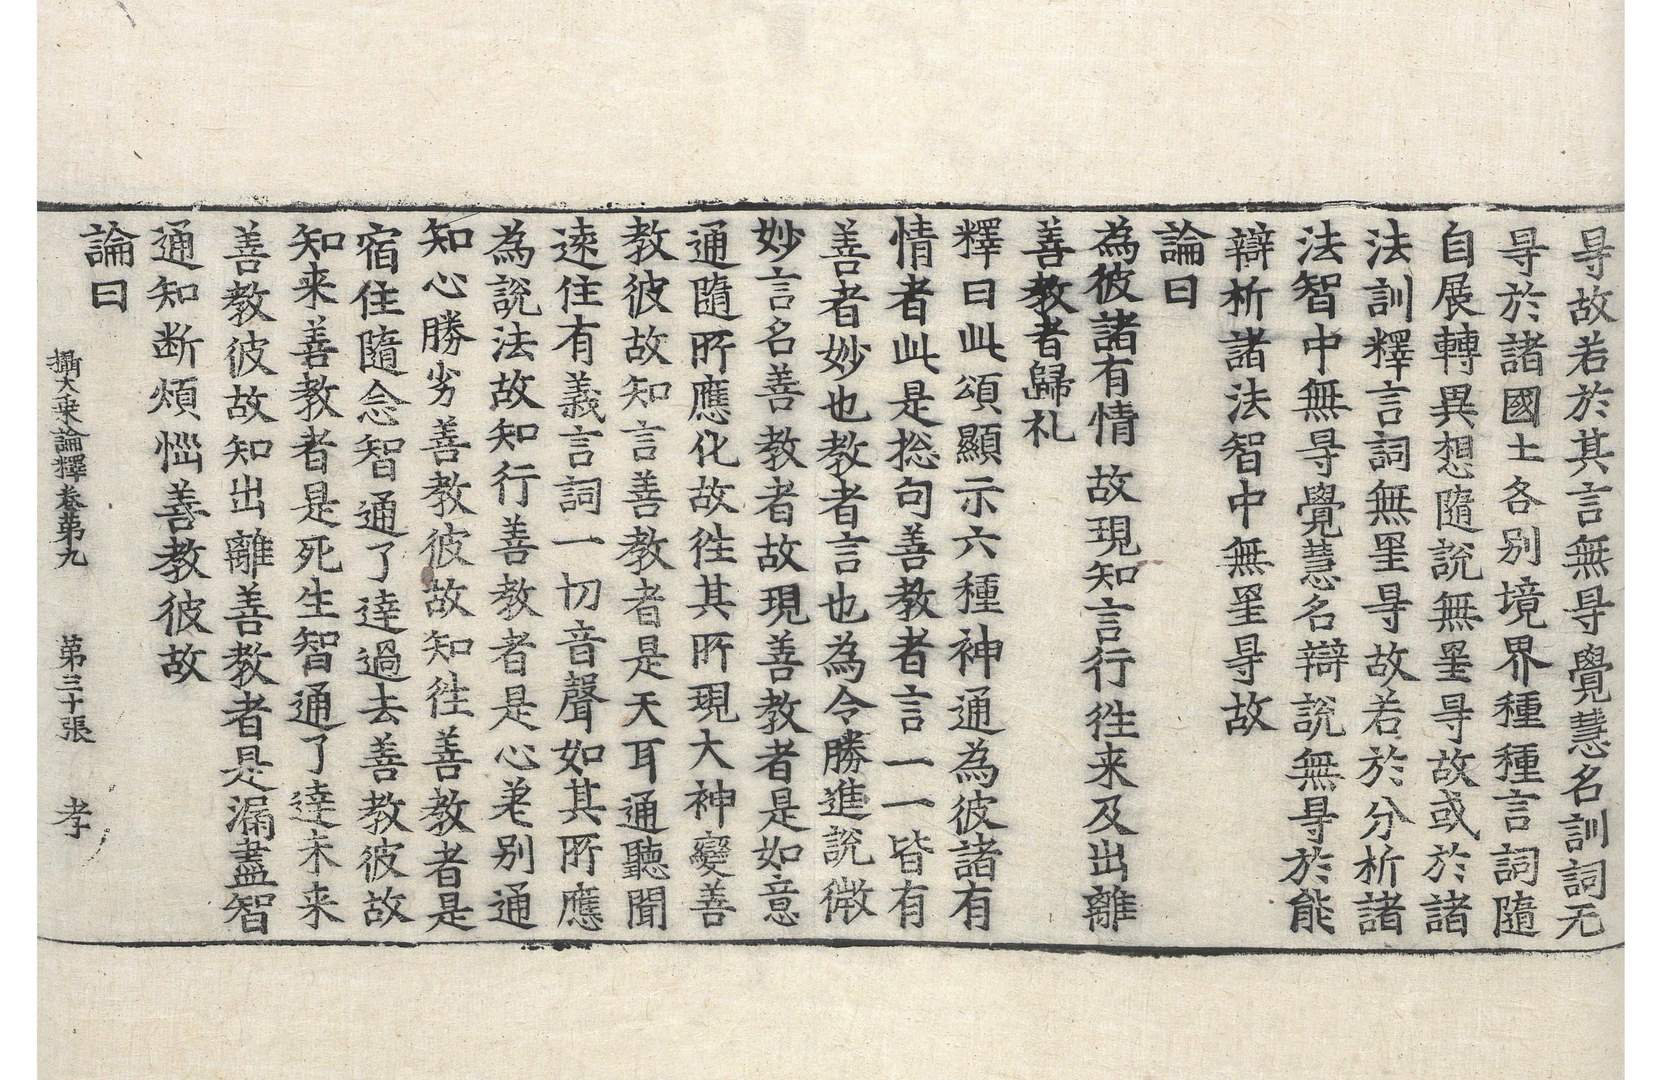 㝵故若於其言無㝵覺慧名訓詞无
㝵於諸國土各別境界種種言詞隨
自展轉異想隨說無罣㝵故或於諸
法訓釋言詞無罣㝵故若於分析諸
法智中無㝵覺慧名辯說無㝵於能
辯析諸法智中無罣㝵故
論曰
為彼諸有情 故現知言行徃来及出離
善教者歸礼
釋曰此頌顯示六種神通為彼諸有
情者此是捴句善教者言一一皆有
善者妙也教者言也為令勝進說微
妙言名善教者故現善教者是如意
通隨所應化故徃其所現大神變善
教彼故知言善教者是天耳通聽聞
遠住有義言詞一切音聲如其所應
為說法故知行善教者是心差別通
知心勝劣善教彼故知徃善教者是
宿住隨念智通了達過去善教彼故
知来善教者是死生智通了達未来
善教彼故知出離善教者是漏盡智
通知断煩惱善教彼故
論曰
攝大乘論釋卷第九 第三十張 孝